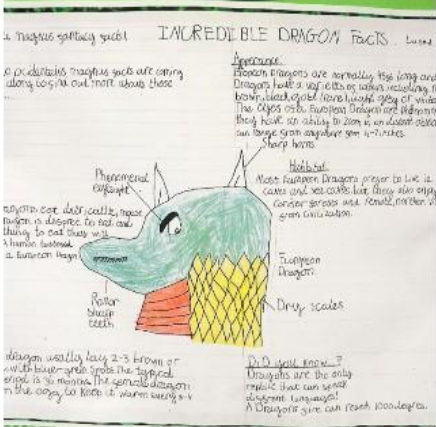 INCREDIBLE DRAGON FACTS..
magnus fantasy facts!
magnus facts are coming
along to find out more about these
Appearance:
European Dragons are normally long and
Dragons have a variety of colours including
brown, black, gold (rare), light grey or white
The eyes of a European Dragon are
they have an ability to zoom in on distant objects
can range from anywhere from 4-7 inches.
Sharp horns
Phenomenal
eyesight
Habitat
Most European Dragons prefer to live in
caves and sea caves but they also enjoy
conifer forests and remote, northern
from civilization.
dragons eat deer, cattle, moose
dragon is desperate to eat and
thing to eat they will
a human
a European Dragon
European
Dragon
Razor
sharp
teeth
Dry scales
dragon usually lay 2-3 brown or
with blue-green spots. The typical
period is 36 months. The female dragon
the eggs to keep it warm every
Did you know..?
Dragons are the only
reptile that can speak
different languages!
A Dragons fire can reach 1000 degrees.